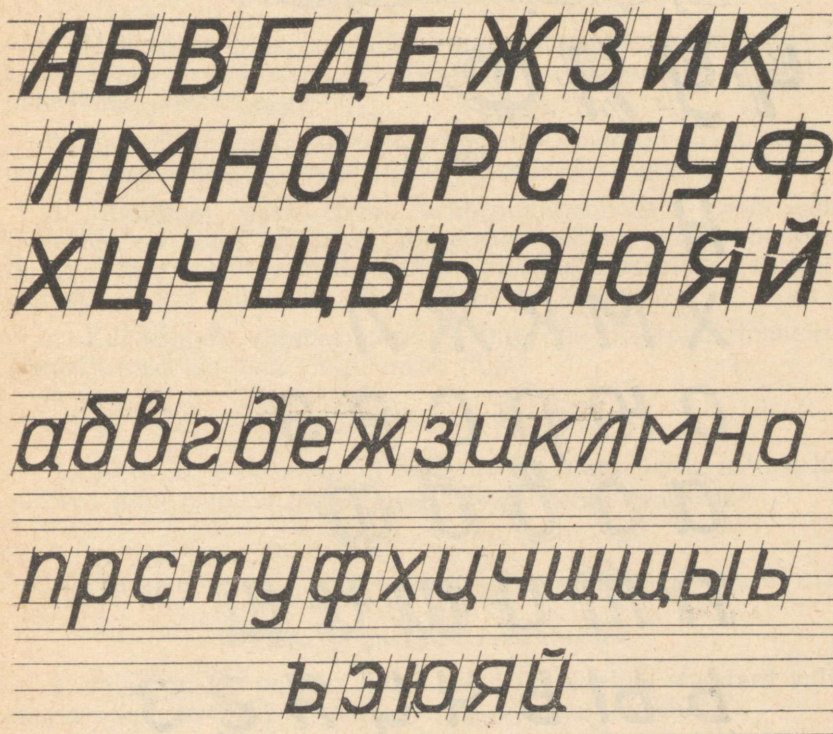 АБВГДЕЖЗИК
ЛМНОПРСТУФ
ХЦЧЩЬЪЭЮЯЙ
абвгдежзиклмно
прстуфхцчшщыь
ъэюяй